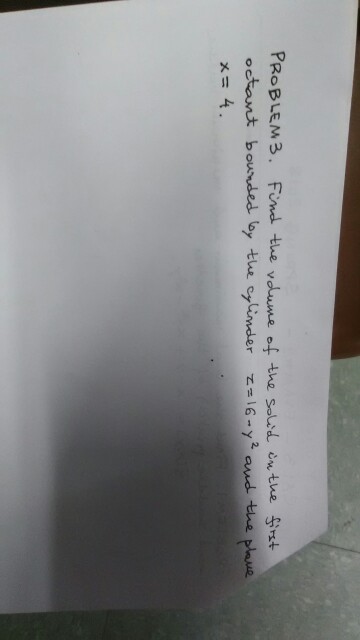 PROBLEM 3. Find the volume of the solid in the first
octant bounded by the cylinder z=16-y² and the plane
x = 4.